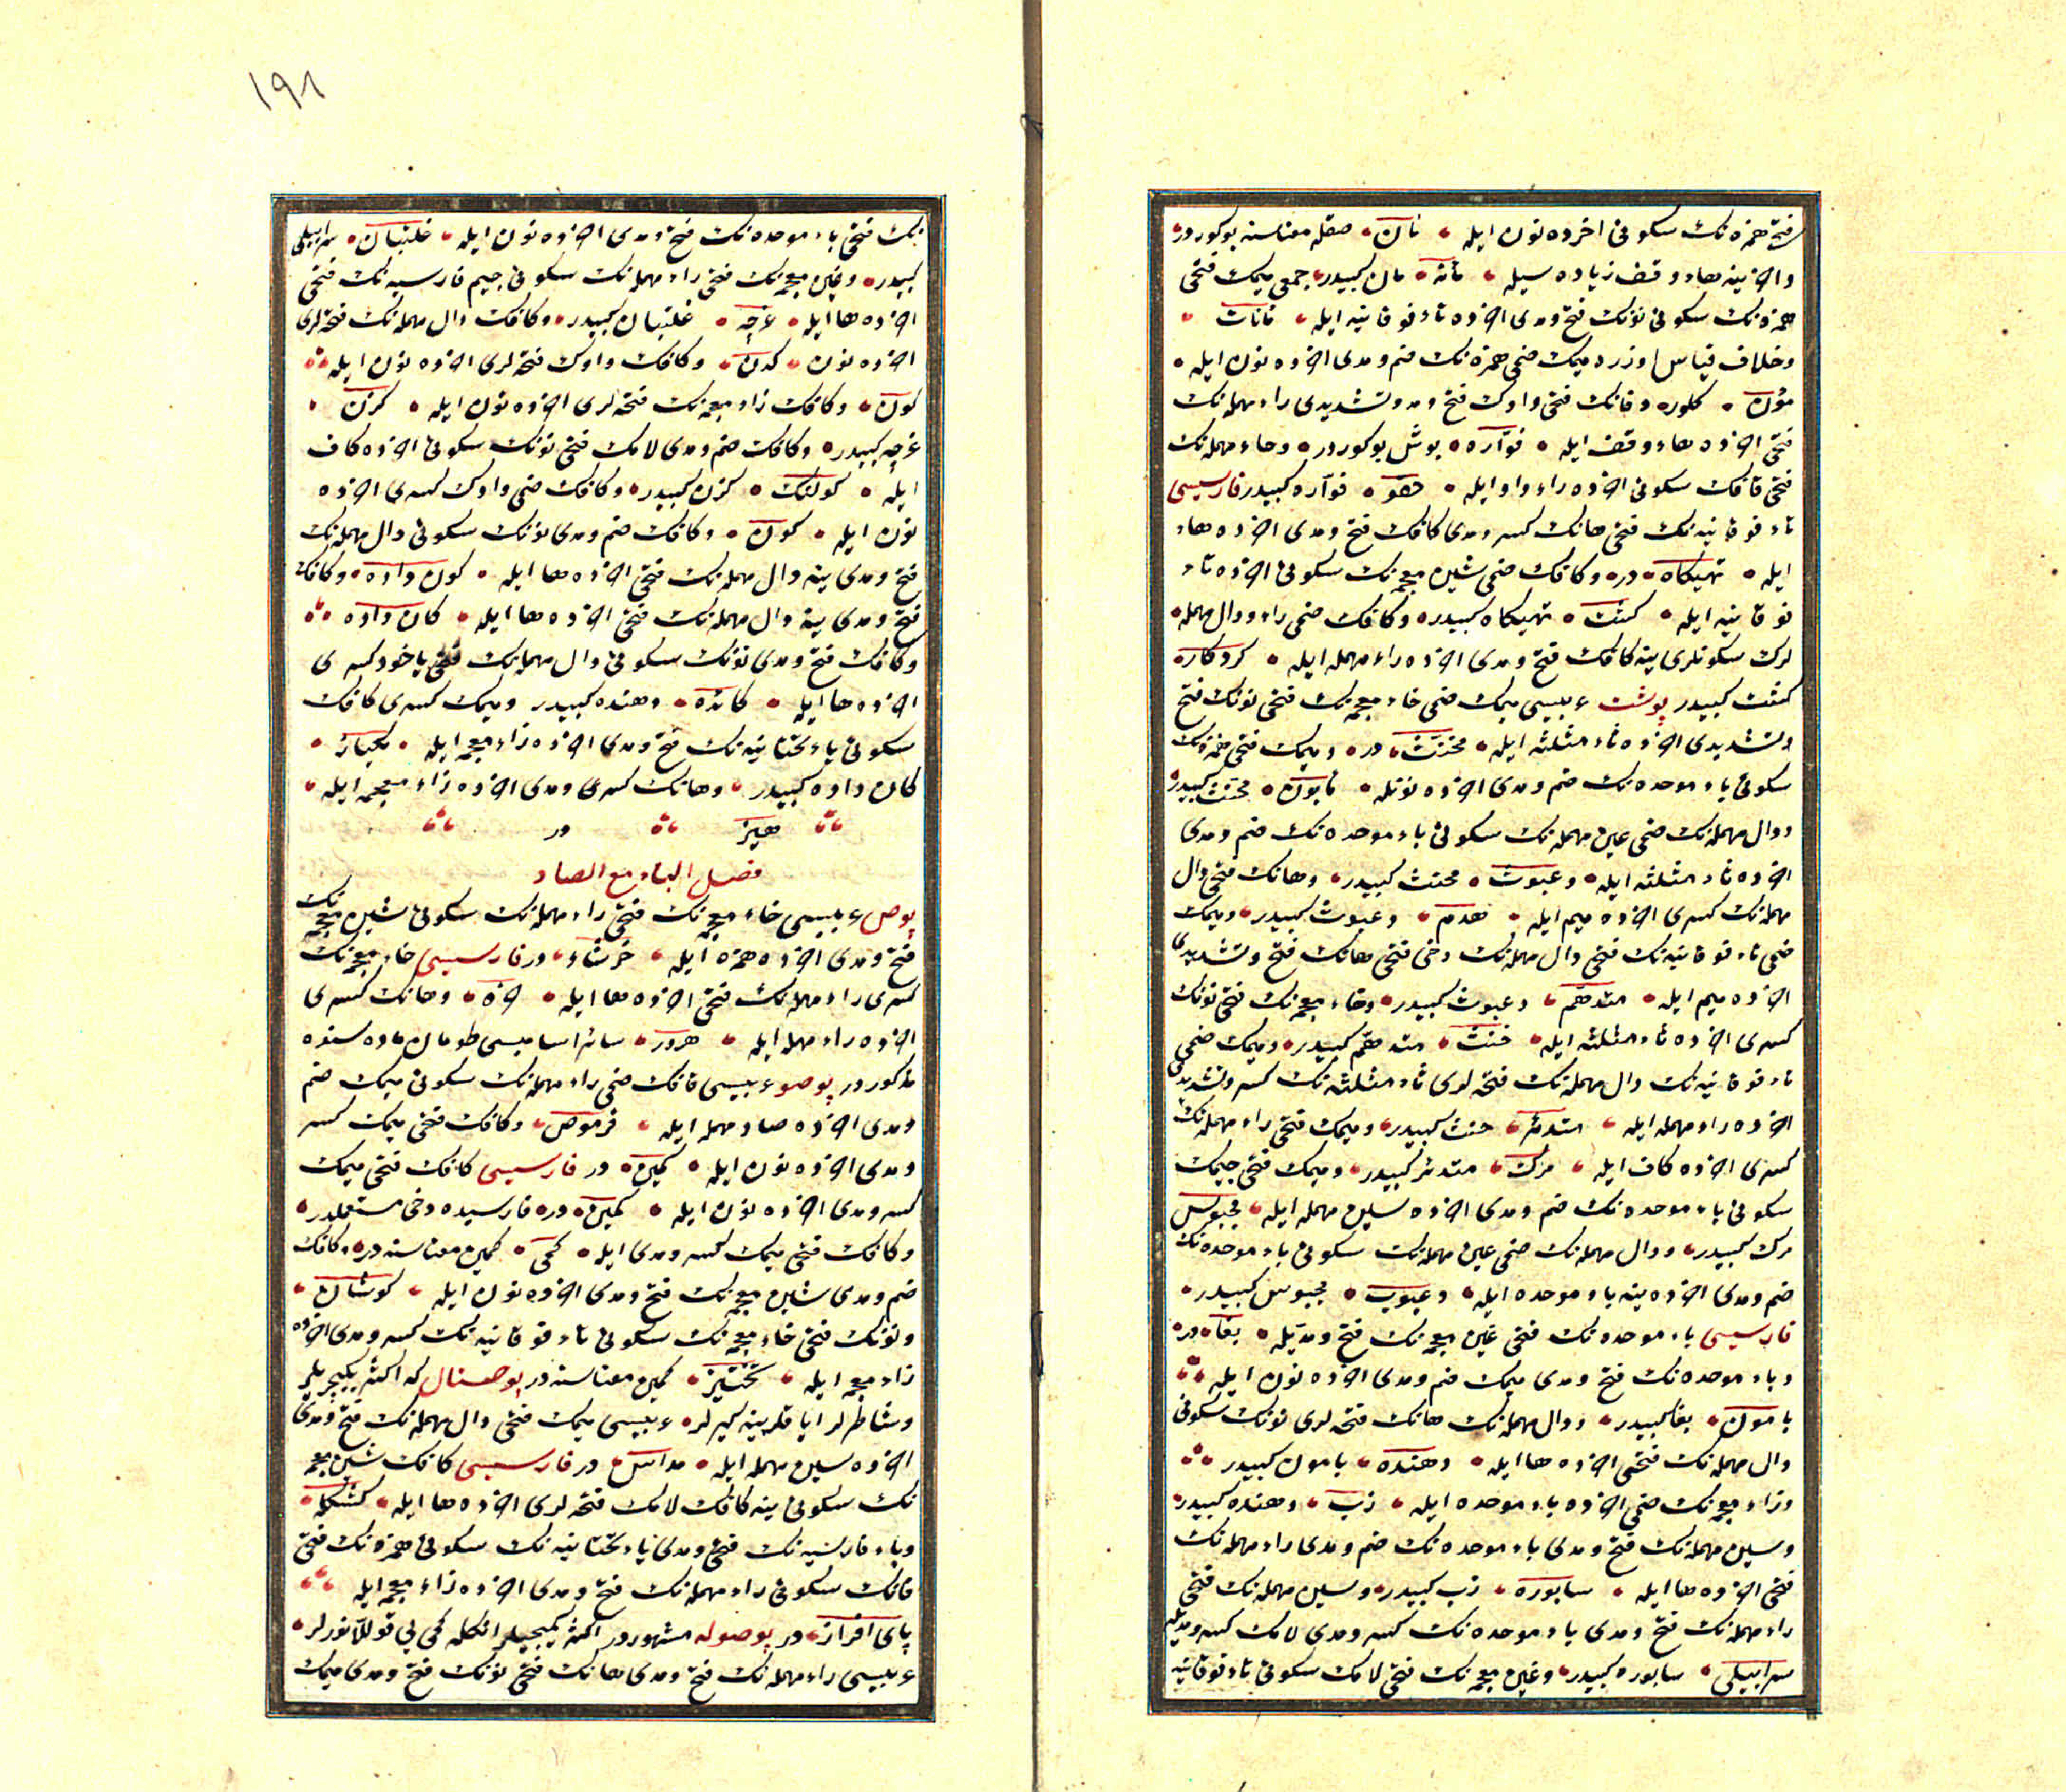 فتحی همزه‌نک سکونی اخرده نون ایله مأن صقله معناسنه بوکوردر
واخرینه هاء وقف زیاده سیله مأنه مان کبیدر جمعی میمک فتحی
همزه‌نک سکونی نونک فتح ومدی اخرده تاء فوقانیه ایله مأنات
وخلاف قیاس اوزره میمک ضمی همزه‌نک ضم ومدی اخرده نون ایله
مؤن کلور وفانک فتحی واوک فتح ومد وتشدیدی راء مهمله‌نک
فتحی اخرده هاء وقف ایله فوّاره بوش بوکوردر وحاء مهمله‌نک
فتحی قافک سکونی اخرده واو ایله حقو فوّاره کبیدر فارسیسی
تاء فوقانیه‌نک فتحی هانک کسر ومدی کافک فتح ومدی اخرده هاء
ایله تهیکاه در وکافک ضمی شین معجمه‌نک سکونی اخرده تاء
فوقانیه ایله کشت تهیکاه کبیدر وکافک ضمی راء ودال مهمله
لرک سکونلری ینه کافک فتح ومدی اخرده راء مهمله ایله کردکار
کشت کبیدر پوشت عربیسی میمک ضمی خاء معجمه‌نک فتحی نونک فتح
وتشدیدی اخرده ثاء مثلثه ایله مخنث در ومیمک فتحی همزه‌نک
سکونی باء موحده‌نک ضم ومدی اخرده نونله مأبون مخنث کبیدر
ودال مهمله‌نک ضمی عین مهمله‌نک سکونی باء موحده‌نک ضم ومدی
اخرده ثاء مثلثه ایله دعبوث مخنث کبیدر وهانک فتحی دال
مهمله‌نک کسری اخرده میم ایله هدم دعبوث کبیدر ومیمک
ضمی تاء فوقانیه‌نک فتحی دال مهمله‌نک دخی فتحی هانک فتح وتشدیدی
اخرده میم ایله متدهّم دعبوث کبیدر وخاء معجمه‌نک فتحی نونک
کسری اخرده ثاء مثلثه ایله خنث متدهّم کبیدر ومیمک ضمی
تاء فوقانیه‌نک دال مهمله‌نک فتحه‌لری ثاء مثلثه‌نک کسر وتشدیدی
اخرده راء مهمله ایله متدثّر خنث کبیدر ومیمک فتحی راء مهمله‌نک
کسری اخرده کاف ایله مرک متدثر کبیدر ومیمک فتحی جیمک
سکونی باء موحده‌نک ضم ومدی اخرده سین مهمله ایله مجبوس
مرک کبیدر ودال مهمله‌نک ضمی عین مهمله‌نک سکونی باء موحده‌نک
ضم ومدی اخرده ینه باء موحده ایله دعبوب مجبوس کبیدر
فارسیسی باء موحده‌نک فتحی غین معجمه‌نک فتح ومدّیله بغا در
وباء موحده‌نک فتح ومدی میمک ضم ومدی اخرده نون ایله
بامون بغا کبیدر ودال مهمله‌نک هانک فتحه‌لری نونک سکونی
دال مهمله‌نک فتحی اخرده ها ایله دهنده بامون کبیدر
وزاء معجمه‌نک ضمی اخرده باء موحده ایله زب دهنده کبیدر
وسین مهمله‌نک فتح ومدی باء موحده‌نک ضم ومدی راء مهمله‌نک
فتحی اخرده ها ایله سابوره زب کبیدر وسین مهمله‌نک فتحی
راء مهمله‌نک فتح ومدی باء موحده‌نک کسر ومدی لامک کسر ومدّیله
سرابیلی سابوره کبیدر وغین معجمه‌نک فتحی لامک سکونی تاء فوقانیه
١٩١
نک فتحی باء موحده‌نک فتح ومدی اخرده نون ایله غلتبان سرابیلی
کبیدر وغین معجمه‌نک فتحی راء مهمله‌نک سکونی جیم فارسیه‌نک فتحی
اخرده ها ایله غرچه غلتبان کبیدر وکافک دال مهمله‌نک فتحه‌لری
اخرده نون کدن وکافک واوک فتحه‌لری اخرده نون ایله
کون وکافک زاء معجمه‌نک فتحه‌لری اخرده نون ایله کزن
غرچه کبیدر وکافک ضم ومدی لامک فتحی نونک سکونی اخرده کاف
ایله کولنک کزن کبیدر وکافک ضمی واوک کسری اخرده
نون ایله کون وکافک ضم ومدی نونک سکونی دال مهمله‌نک
فتح ومدی ینه دال مهمله‌نک فتحی اخرده ها ایله کون داده وکافک
فتح ومدی ینه دال مهمله‌نک فتحی اخرده ها ایله کان داده
وکافک فتح ومدی نونک سکونی دال مهمله‌نک فتحی یاخود کسری
اخرده ها ایله کانده دهنده کبیدر ومیمک کسری کافک
سکونی یاء تحتانیه‌نک فتح ومدی اخرده زاء معجمه ایله مکیاز
کان داده کبیدر وهانک کسری ومدی اخرده زاء معجمه ایله
هیز در
فصل الباء مع الصاد
پوص عربیسی خاء معجمه‌نک فتحی راء مهمله‌نک سکونی شین معجمه‌نک
فتح ومدی اخرده همزه ایله خرشاء در فارسیسی خاء معجمه‌نک
کسری راء مهمله‌نک فتحی اخرده ها ایله خره وهانک کسری
اخرده راء مهمله ایله هرور سائر اسامیسی طومان ماده سنده
مذکوردر پوصو عربیسی قافک ضمی راء مهمله‌نک سکونی میمک ضم
ومدی اخرده صاد مهمله ایله قرموص وکافک فتحی میمک کسر
ومدی اخرده نون ایله کمین در فارسیسی کافک فتحی میمک
کسر ومدی اخرده نون ایله کمین در فارسیده دخی مستعملدر
وکافک فتحی میمک کسر ومدی ایله کمی کمین معناسنه در وکافک
ضم ومدی شین معجمه‌نک فتح ومدی اخرده نون ایله کوشان
ونونک فتحی خاء معجمه‌نک سکونی تاء فوقانیه‌نک کسر ومدی اخرده
زاء معجمه ایله نختیز کمین معناسنه در پوصتال که اکثر یکیچریلر
وشاطرلر ایاقلرینه کیرلر عربیسی میمک فتحی دال مهمله‌نک فتح ومدی
اخرده سین مهمله ایله مداس در فارسیسی کافک شین معجمه
نک سکونی ینه کافک لامک فتحه‌لری اخرده ها ایله کشکله
وباء فارسیه‌نک فتح ومدی یاء تحتانیه‌نک سکونی همزه‌نک فتحی
فانک سکونی راء مهمله‌نک فتح ومدی اخرده زاء معجمه ایله
پای افراز در پوصوله مشهوردر اکثر کمیجیلر انکله کمی یی قوللانورلر
عربیسی راء مهمله‌نک فتح ومدی هانک فتحی نونک فتح ومدی میمک